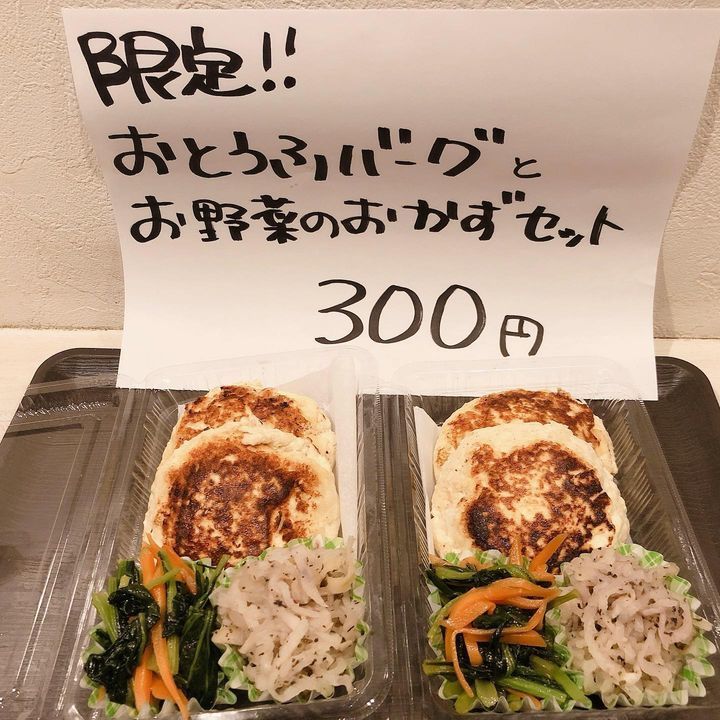 限定!!
おとうふバーグと
お野菜のおかずセット
300円